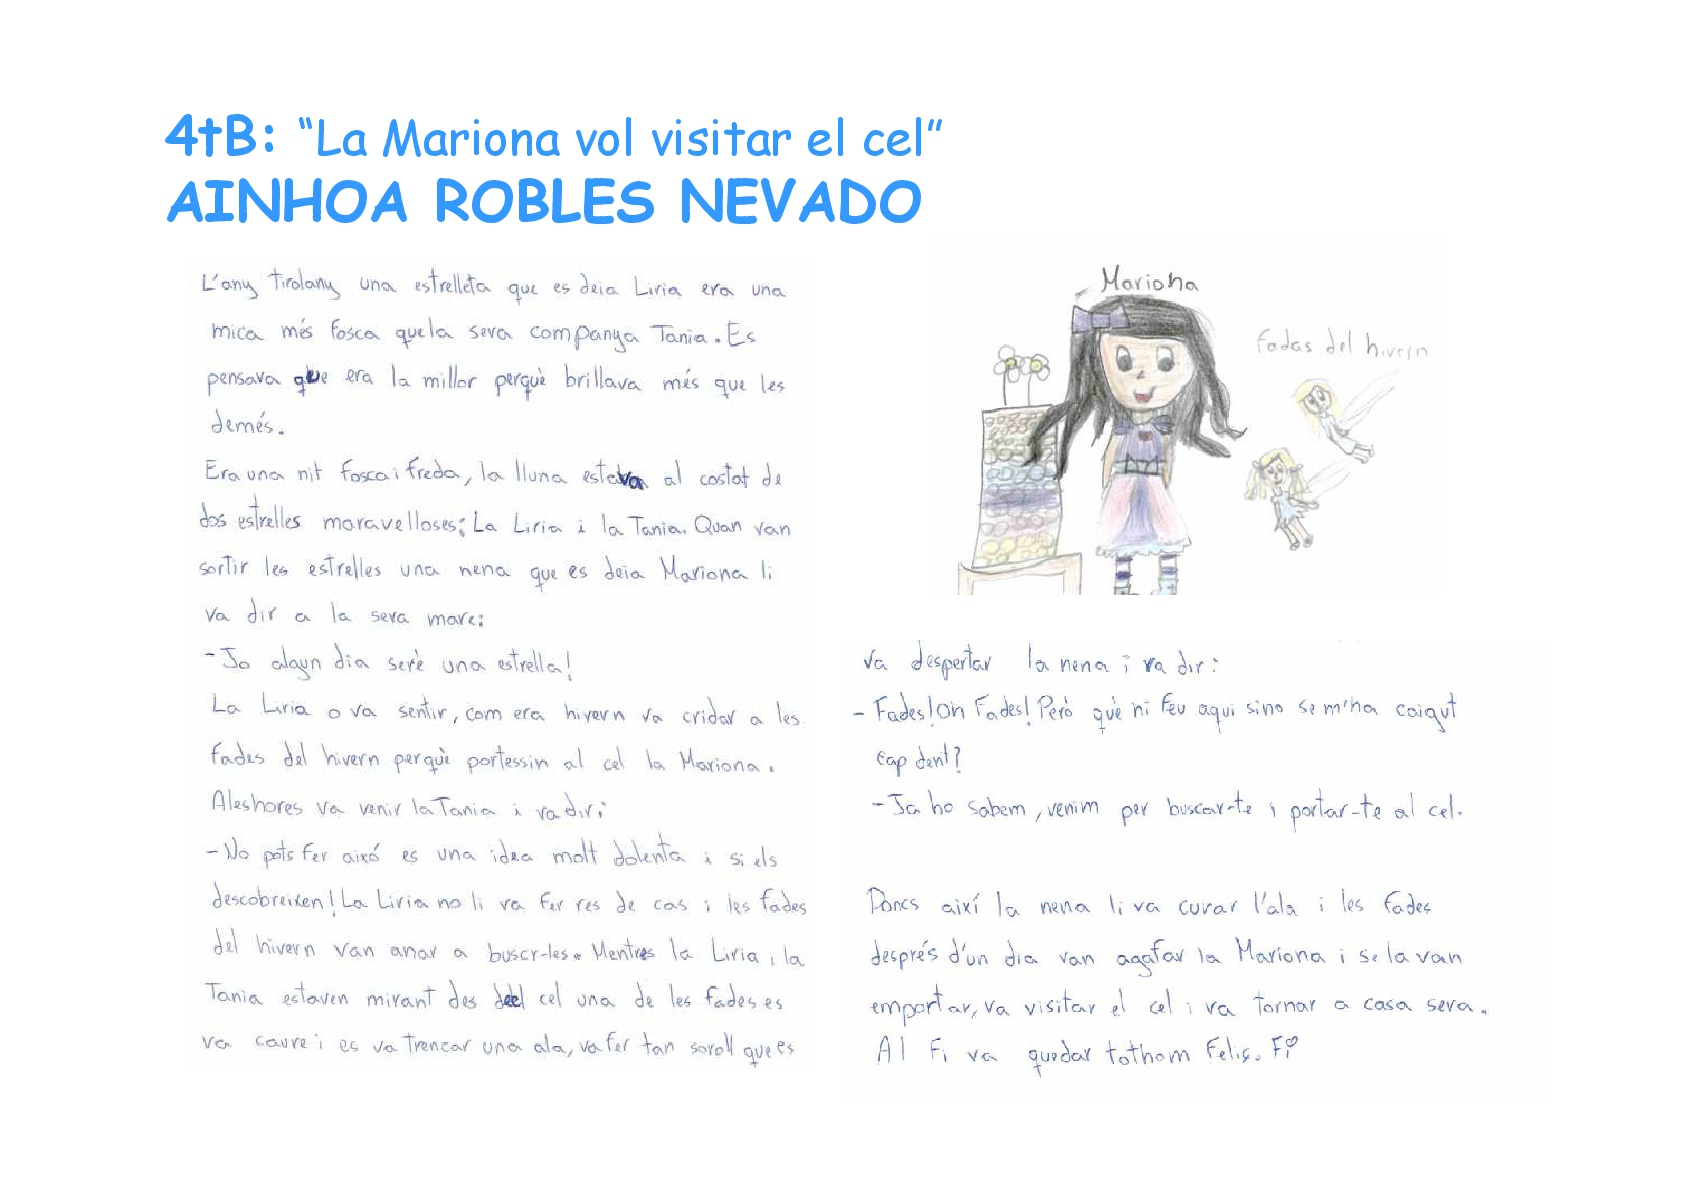 4tB: “La Mariona vol visitar el cel”
AINHOA ROBLES NEVADO
L'any tirolany una estrelleta que es deia Liria era una
mica més fosca quela seva companya Tania. Es
pensava que era la millor perquè brillava més que les
demés.
Era una nit fosca i freda, la lluna estava al costat de
dos estrelles maravelloses: La Liria i la Tania. Quan van
sortir les estrelles una nena que es deia Mariona li
va dir a la seva mare:
- Jo algun dia serè una estrella!
La Liria o va sentir, com era hivern va cridar a les
fades del hivern perquè portessin al cel la Mariona.
Aleshores va venir la Tania i va dir:
- No pots fer aixó es una idea molt dolenta i si els
descobreixen! La Liria no li va fer res de cas i les fades
del hivern van anar a buscr-les. Mentres la Liria i la
Tania estaven mirant des del cel una de les fades es
va caure i es va trencar una ala, va fer tan soroll que es
Mariona
Fadas del hivern
va despertar la nena i va dir:
- Fades! Oh Fades! Però què hi feu aqui sino se m'ha caigut
cap dent?
- Ja ho sabem, venim per buscar-te i portar-te al cel.
Doncs així la nena li va curar l'ala i les fades
després d'un dia van agafar la Mariona i se la van
emportar, va visitar el cel i va tornar a casa seva.
Al Fi va quedar tothom Feliç. Fi